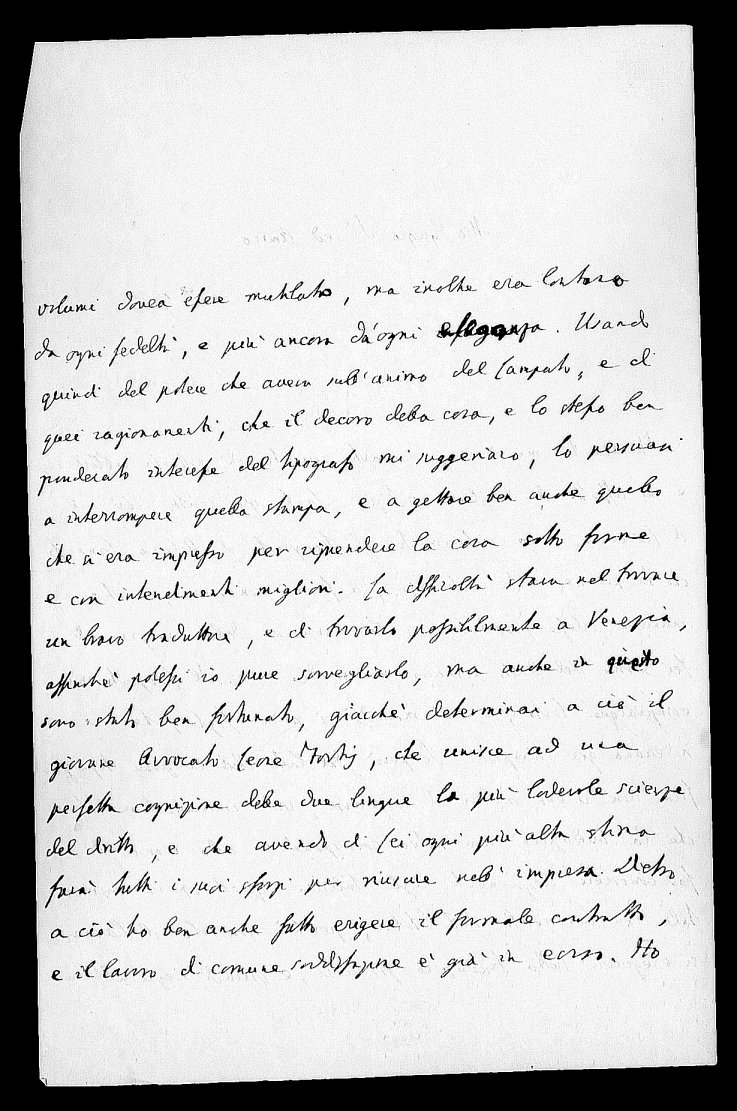 volumi dovea essere mutilato, ma inoltre era lontano
da ogni fedeltà, e più ancora da ogni eleganza. Usando
quindi del potere che aveva sull'animo del Campato, e di
quei ragionamenti, che il decoro della cosa, e lo stesso ben
ponderato interesse del tipografo mi suggerivano, lo persuasi
a interrompere quella stampa, e a gettare ben anche quello
che si era impresso per riprendere la cosa sotto forme
e con intendimenti migliori. La difficoltà stava nel trovare
un bravo traduttore, e di trovarlo possibilmente a Venezia,
affinché potessi io pure sorvegliarlo, ma anche in questo
sono stato ben fortunato, giacché determinai a ciò il
giovane Avvocato Leone Fortis, che unisce ad una
perfetta cognizione delle due lingue la più lodevole scienza
del dritto, e che avendo di Lei ogni più alta stima
farà tutti i suoi sforzi per riuscire nell'impresa. Dietro
a ciò ho ben anche fatto erigere il formale contratto,
e il lavoro di comune soddisfazione è già in corso. Ho